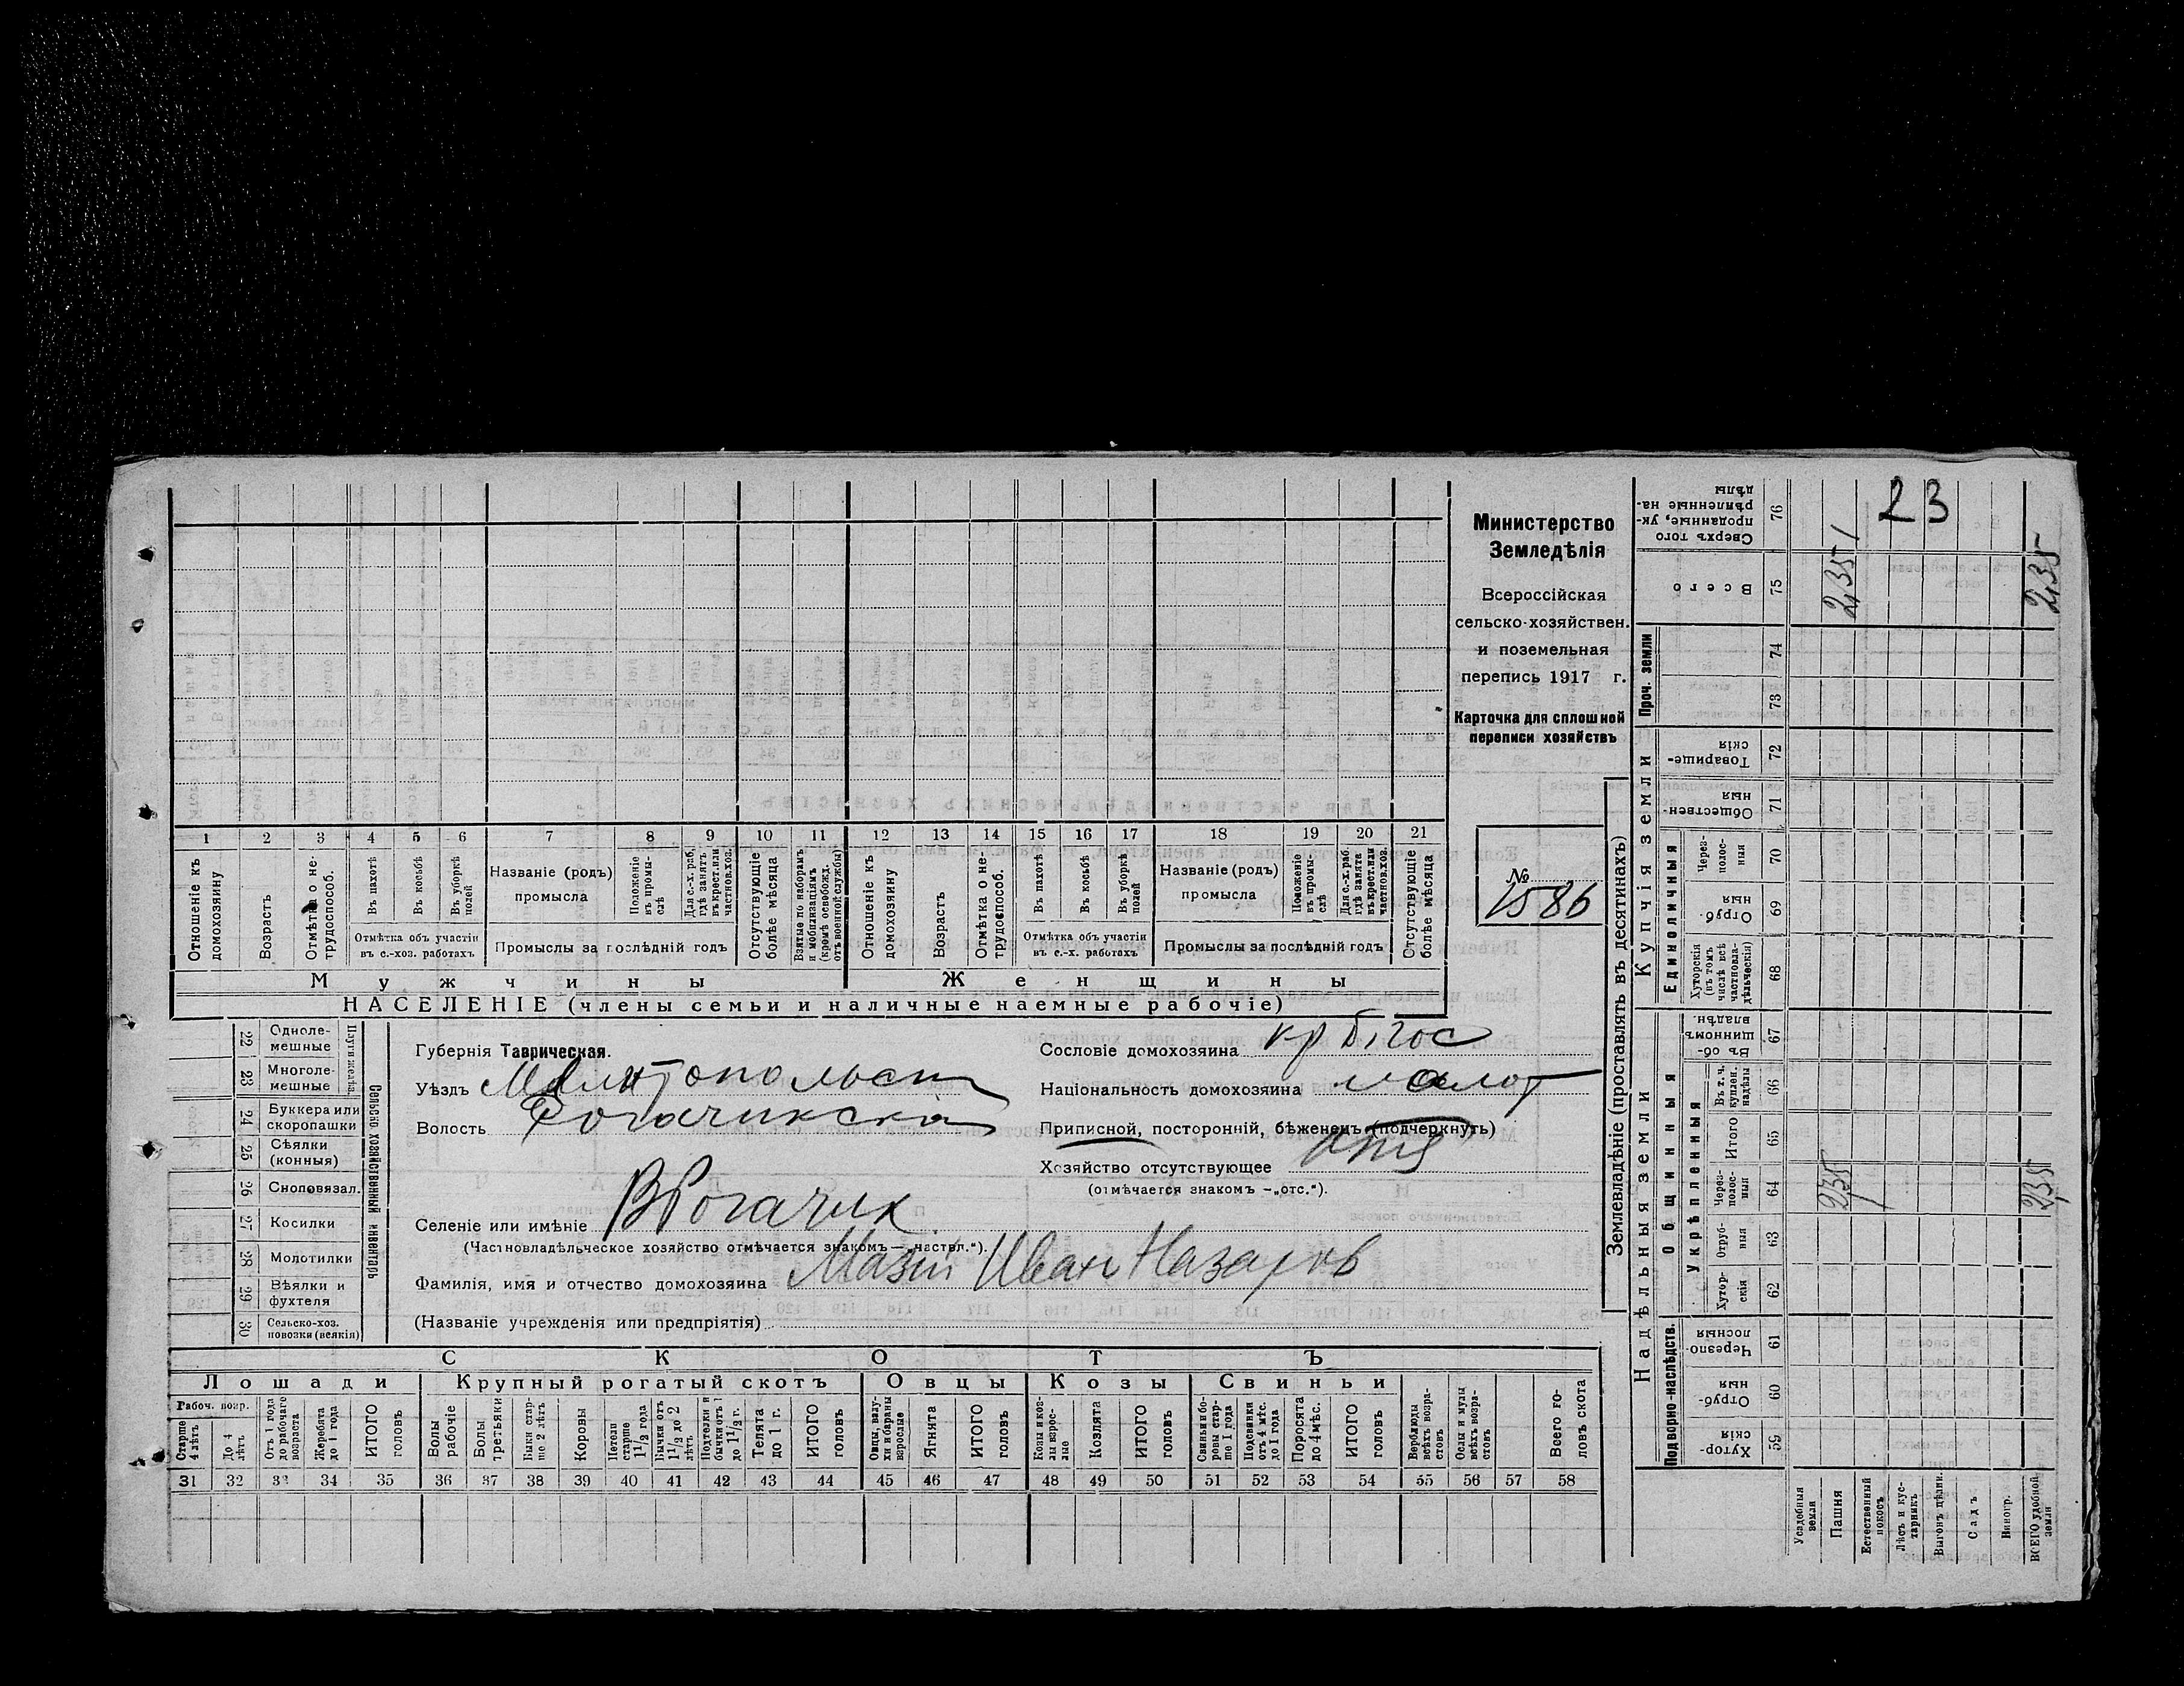 23
Министерство
Земледѣлія
Всероссійская
сельско-хозяйствен.
и поземельная
перепись 1917 г.
Карточка для сплошной
переписи хозяйствъ
№
1586
1 2 3 4 5 6 7 8 9 10 11 12 13 14 15 16 17 18 19 20 21
Отношеніе къ домохозяину
Возрастъ
Отмѣтка о не-трудоспособ.
Въ пахотѣ
Въ косьбѣ
Въ уборкѣ полей
Отмѣтка объ участіи
въ с.-хоз. работахъ
Названіе (родъ)
промысла
Положеніе въ промы-слѣ
Для с.-х. раб. гдѣ занятъ въ крест. или частнов. хоз.
Промыслы за послѣдній годъ
Отсутствующіе болѣе мѣсяца
Взятые по наборамъ и мобилизаціямъ (кромѣ освобожд. отъ военной службы)
Отношеніе къ домохозяину
Возрастъ
Отмѣтка о не-трудоспособ.
Въ пахотѣ
Въ косьбѣ
Въ уборкѣ полей
Отмѣтка объ участіи
въ с.-х. работахъ
Названіе (родъ)
промысла
Положеніе въ промы-слѣ
Для с.-х. раб. гдѣ занята въ крест. или частнов. хоз.
Промыслы за послѣдній годъ
Отсутствующіе болѣе мѣсяца
Мужчины Женщины
НАСЕЛЕНІЕ (члены семьи и наличные наемные рабочіе)
22 Одноле-мешные
23 Многоле-мешные
24 Буккера или скоропашки
25 Сѣялки (конныя)
26 Сноповязал.
27 Косилки
28 Молотилки
29 Вѣялки и фухтеля
30 Сельско-хоз. повозки (всякія)
Сельско хозяйственный инвентарь
Губернія Таврическая.
Уѣздъ Мелитопольск
Волость Рогачикская
Селеніе или имѣніе ВРогачик
(Частновладѣльческое хозяйство отмѣчается знакомъ—„частвл.“).
Фамилія, имя и отчество домохозяина Мазій Иван Назаров
(Названіе учрежденія или предпріятія)
Сословіе домохозяина
Національность домохозяина малор
Приписной, посторонній, бѣженецъ (подчеркнуть)
Хозяйство отсутствующее отс
(отмѣчается знакомъ —„отс.“).
СКОТЪ
Лошади Крупный рогатый скотъ Овцы Козы Свиньи
Рабоч. возр.
Старше 4 лѣтъ
До 4 лѣтъ
Отъ 1 года до рабочаго возраста
Жеребята до 1 года
ИТОГО головъ
Волы рабочіе
Волы третьяки
Быки стар-ше 2 лѣтъ
Коровы
Нетели старше 1 1/2 года
Бычки отъ 1 1/2 до 2 лѣтъ
Подтелки и бычки отъ 1 до 1 1/2 г.
Телята до 1 г.
ИТОГО головъ
Овцы, валу-хи и бараны взрослые
Ягнята
ИТОГО головъ
Козы и коз-лы взрос-лые
Козлята
ИТОГО головъ
Свиньи и бо-ровы стар-ше 1 года
Подсвинки отъ 4 мѣс. до 1 года
Поросята до 4 мѣс.
ИТОГО головъ
Верблюды всѣхъ возра-стовъ
Ослы и мулы всѣхъ возра-стовъ
Всего го-ловъ скота
31 32 33 34 35 36 37 38 39 40 41 42 43 44 45 46 47 48 49 50 51 52 53 54 55 56 57 58
Землевладѣніе (проставлять въ десятинахъ)
Надѣльныя земли
Подворно-наслѣдств.
Хутор-скія 59
Отруб-ныя 60
Черезпо-лосныя 61
Общинныя
Укрѣпленныя
Хутор-скія 62
Отруб-ныя 63
Через-полос-ныя 64
Итого 65
Въ т. ч. куплен. надѣлы 66
Въ об-щинномъ владѣн. 67
Купчія земли
Единоличныя
Хуторскія (въ томъ числѣ всѣ частновла-дѣльческія) 68
Отруб-ныя 69
Через-полос-ныя 70
Обществен-ныя 71
Товарище-скія 72
Проч. земли
73
74
Всего 75
Сверхъ того проданные, ук-рѣпленные на-дѣлы 76
Усадебныя земли
Пашня
Естественный покосъ
Лѣсъ и кус-тарникъ
Выгонъ цѣлин.
Садъ
Виногр.
ВСЕГО удобной земли
2,35
2,35
2,35
2,35